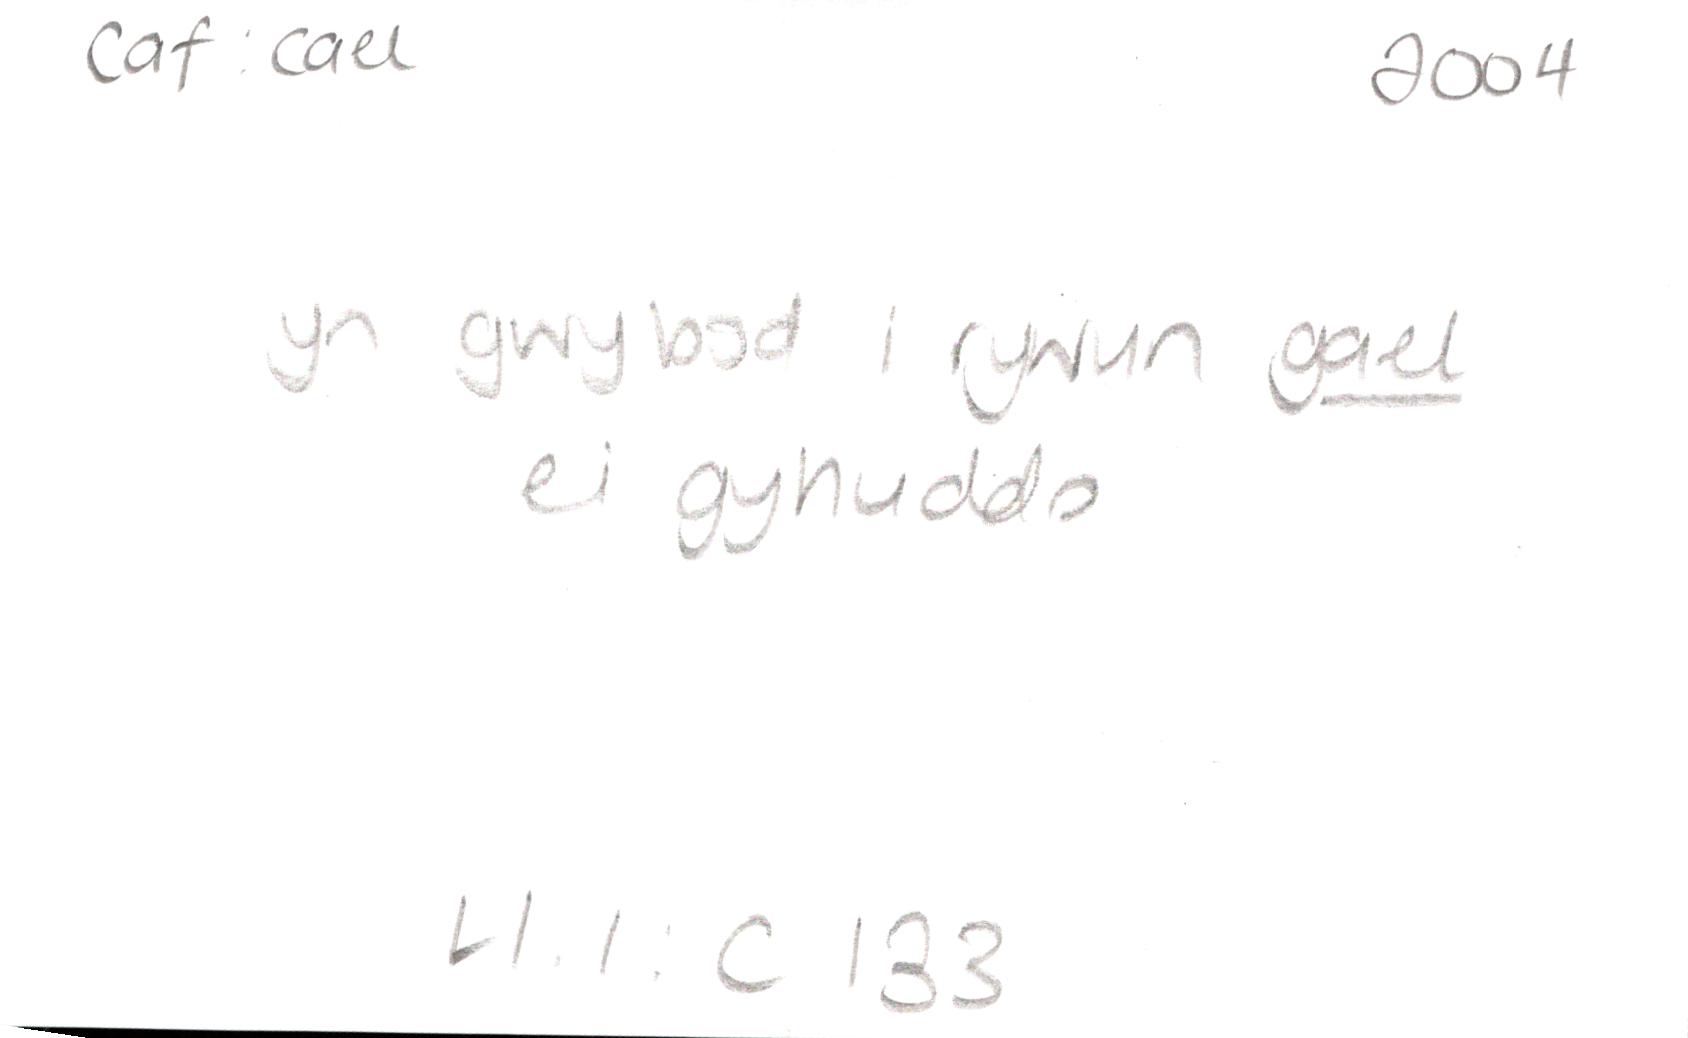 Caf : cael
2004
yn gwybod i rywun gael
ei gyhuddo
Ll. I : C 133